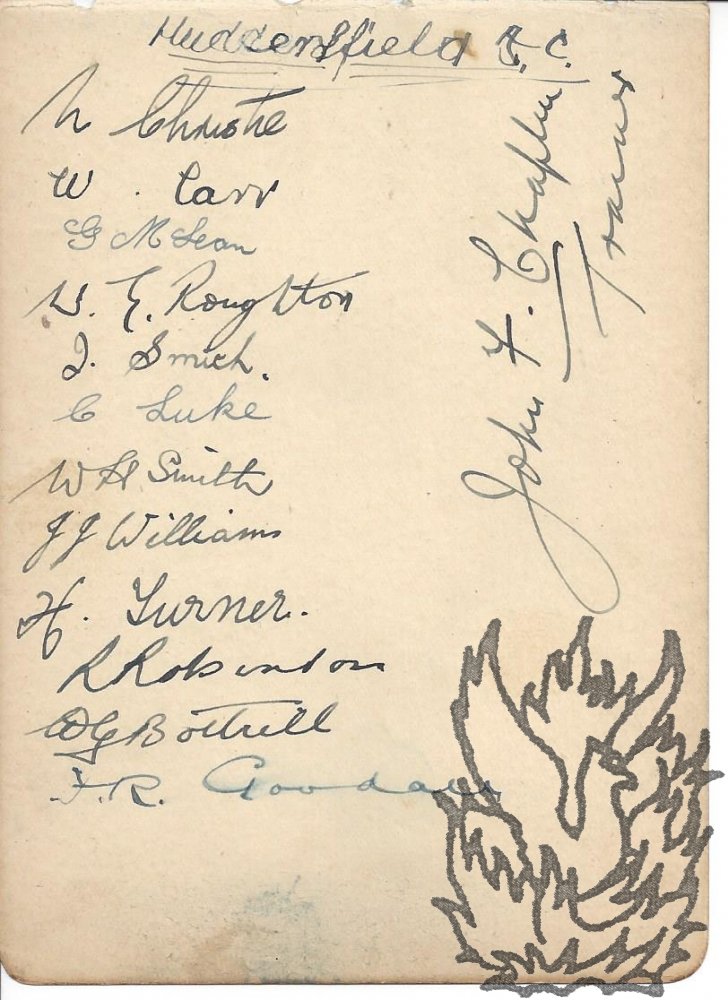 Huddersfield A.C.
N Christie
W. Carr
G McLean
W. G. Roughton
J. Smith.
C Luke
W H Smith
J J Williams
H. Turner.
R Robinson
W G Bottrill
F. R. Goodall
John F. Chaplin
Trainer